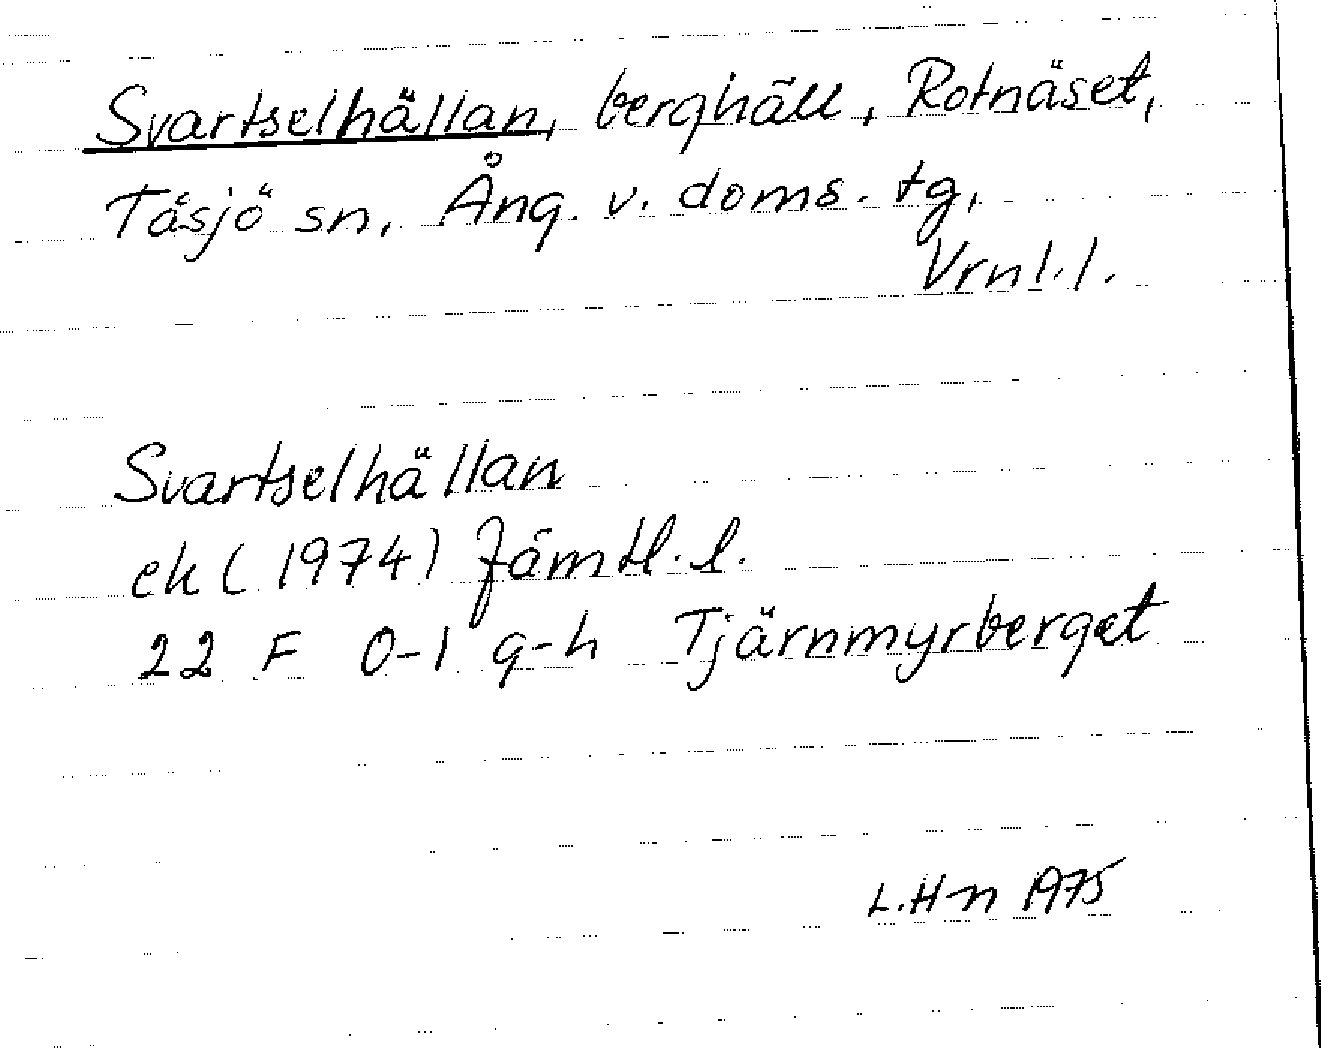 Svartselhällan, berghäll, Rotnäset,
Tåsjö sn, Ång. v. doms. tg,
Vrnl.l.
Svartselhällan
ek (1974) Jämtl. l.
22 F 0-1 g-h Tjärnmyrberget
L.Hn 1975